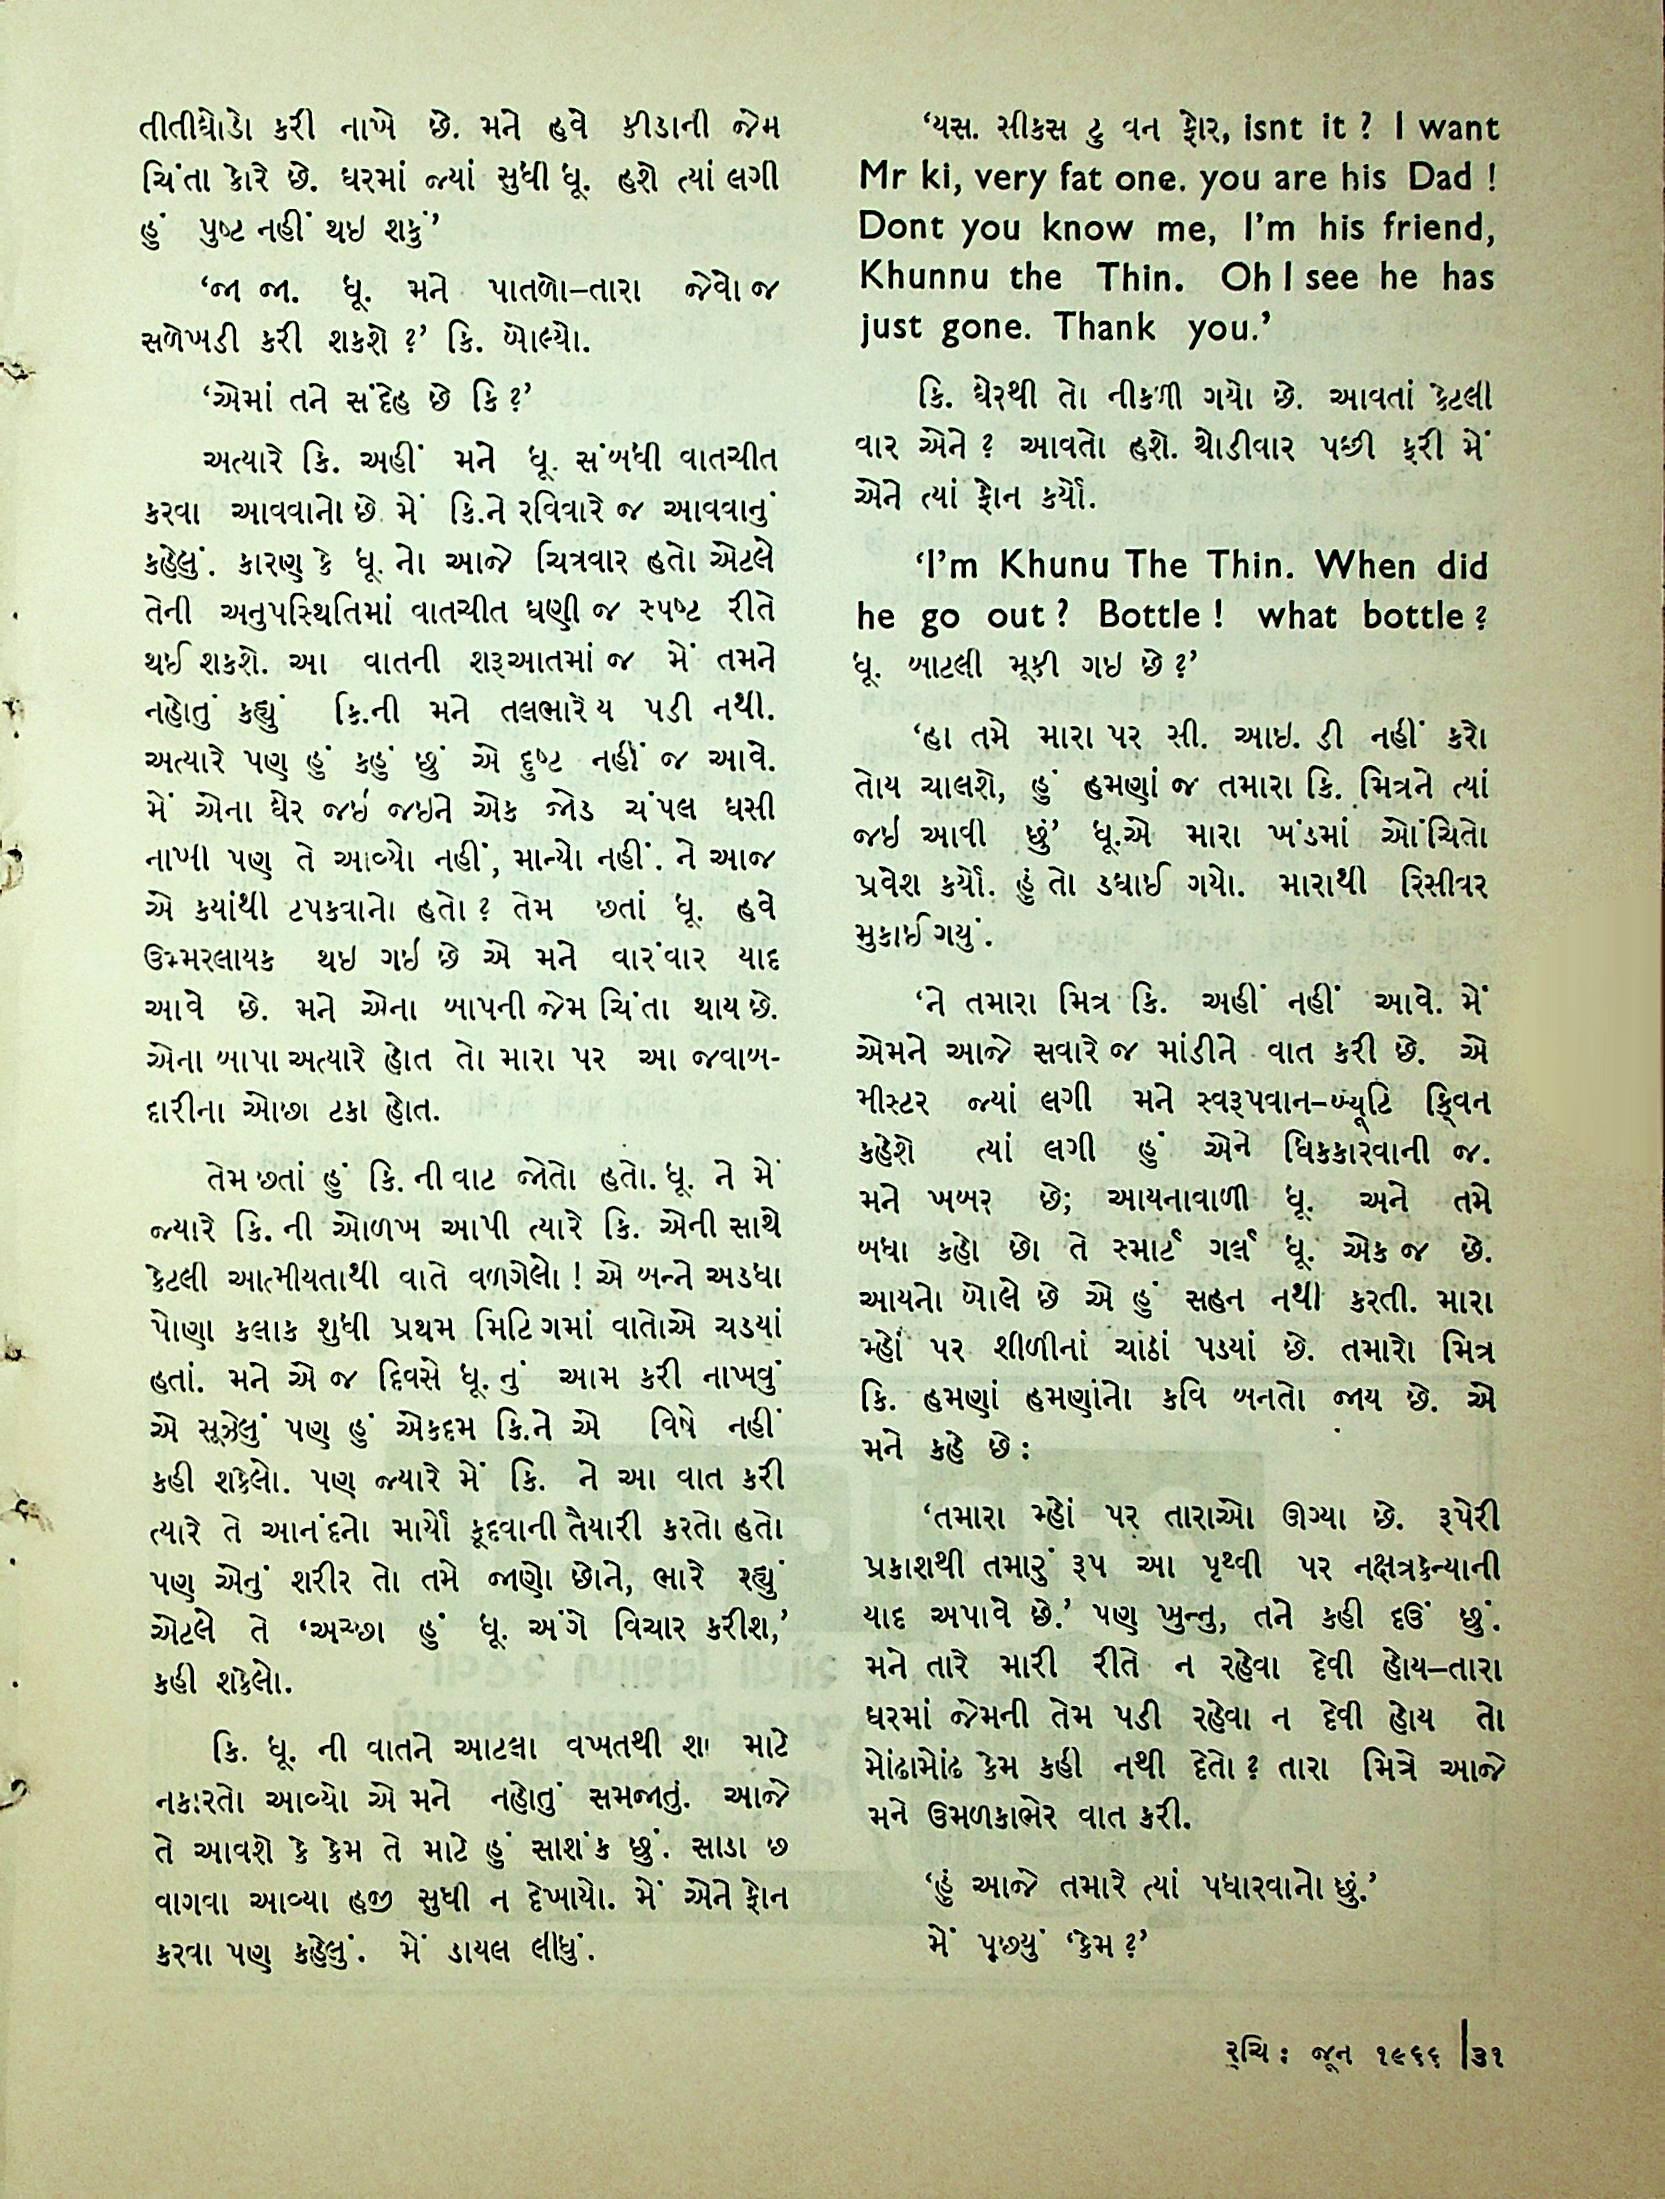 તીતીઘોડો કરી નાખે છે. મને હવે કીડાની જેમ
ચિંતા કોરે છે. ઘરમાં જ્યાં સુધી ધૂ. હશે ત્યાં લગી
હું પુષ્ટ નહીં થઇ શકું’
‘જા જા. ધૂ. મને પાતળો–તારા જેવો જ
સળેખડી કરી શકશે ?’ કિ. બોલ્યો.
‘એમાં તને સંદેહ છે કિ ?’
અત્યારે કિ. અહીં મને ધૂ. સંબધી વાતચીત
કરવા આવવાનો છે. મેં કિ.ને રવિવારે જ આવવાનું
કહેલું. કારણ કે ધૂ. નો આજે ચિત્રવાર હતો એટલે
તેની અનુપસ્થિતિમાં વાતચીત ઘણી જ સ્પષ્ટ રીતે
થઈ શકશે. આ વાતની શરૂઆતમાં જ મેં તમને
નહોતું કહ્યું કિ.ની મને તલભારેય પડી નથી.
અત્યારે પણ હું કહું છું એ દુષ્ટ નહીં જ આવે.
મેં એના ઘેર જઇ જઇને એક જોડ ચંપલ ઘસી
નાખી પણ તે આવ્યો નહીં, માન્યો નહીં. ને આજ
એ કયાંથી ટપકવાનો હતો ? તેમ છતાં ધૂ. હવે
ઉમ્મરલાયક થઇ ગઈ છે એ મને વારંવાર યાદ
આવે છે. મને એના બાપની જેમ ચિંતા થાય છે.
એના બાપા અત્યારે હોત તો મારા પર આ જવાબ-
દારીના ઓછા ટકા હોત.
તેમ છતાં હું કિ. ની વાટ જોતો હતો. ધૂ. ને મેં
જ્યારે કિ. ની ઓળખ આપી ત્યારે કિ. એની સાથે
કેટલી આત્મીયતાથી વાતે વળગેલો ! એ બન્ને અડધા
પોણા કલાક શુધી પ્રથમ મિટિંગમાં વાતોએ ચડયાં
હતાં. મને એ જ દિવસે ધૂ. નું આમ કરી નાખવું
એ સૂઝેલું પણ હું એકદમ કિ.ને એ વિષે નહીં
કહી શકેલો. પણ જ્યારે મેં કિ. ને આ વાત કરી
ત્યારે તે આનંદનો માર્યો કૂદવાની તૈયારી કરતો હતો
પણ એનું શરીર તો તમે જાણો છોને, ભારે રહ્યું
એટલે તે ‘અચ્છા હું ધૂ. અંગે વિચાર કરીશ,’
કહી શકેલો.
કિ. ધૂ. ની વાતને આટલા વખતથી શા માટે
નકારતો આવ્યો એ મને નહોતું સમજાતું. આજે
તે આવશે કે કેમ તે માટે હું સાશંક છું. સાડા છ
વાગવા આવ્યા હજી સુધી ન દેખાયો. મેં એને ફોન
કરવા પણ કહેલું. મેં ડાયલ લીધું.
‘યસ. સીકસ ટુ વન ફોર, isnt it ? I want
Mr ki, very fat one. you are his Dad !
Dont you know me, I’m his friend,
Khunnu the Thin. Oh I see he has
just gone. Thank you.’
કિ. ઘેરથી તો નીકળી ગયો છે. આવતાં કેટલી
વાર એને ? આવતો હશે. થોડીવાર પછી ફરી મેં
એને ત્યાં ફોન કર્યો.
‘I’m Khunu The Thin. When did
he go out ? Bottle ! what bottle ?
ધૂ. બાટલી મૂકી ગઇ છે ?’
‘હા તમે મારા પર સી. આઇ. ડી નહીં કરો
તોય ચાલશે, હું હમણાં જ તમારા કિ. મિત્રને ત્યાં
જઇ આવી છું’ ધૂ.એ મારા ખંડમાં ઓંચિતો
પ્રવેશ કર્યો. હું તો ડઘાઈ ગયો. મારાથી રિસીવર
મુકાઈ ગયું.
‘ને તમારા મિત્ર કિ. અહીં નહીં આવે. મેં
એમને આજે સવારે જ માંડીને વાત કરી છે. એ
મીસ્ટર જ્યાં લગી મને સ્વરૂપવાન–બ્યૂટિ ક્વિન
કહેશે ત્યાં લગી હું એને ધિકકારવાની જ.
મને ખબર છે; આયનાવાળી ધૂ. અને તમે
બધા કહો છો તે સ્માર્ટ ગર્લ ધૂ. એક જ છે.
આયનો બોલે છે એ હું સહન નથી કરતી. મારા
મ્હોં પર શીળીનાં ચાઠાં પડયાં છે. તમારો મિત્ર
કિ. હમણાં હમણાંનો કવિ બનતો જાય છે. એ
મને કહે છે :
‘તમારા મ્હોં પર તારાઓ ઊગ્યા છે. રૂપેરી
પ્રકાશથી તમારું રૂપ આ પૃથ્વી પર નક્ષત્રકન્યાની
યાદ અપાવે છે.’ પણ ખુન્નુ, તને કહી દઉં છું.
મને તારે મારી રીતે ન રહેવા દેવી હોય–તારા
ઘરમાં જેમની તેમ પડી રહેવા ન દેવી હોય તો
મોંઢામોંઢ કેમ કહી નથી દેતો ? તારા મિત્રે આજે
મને ઉમળકાભેર વાત કરી.
‘હું આજે તમારે ત્યાં પધારવાનો છું.’
મેં પૂછ્યું ‘કેમ ?’
રુચિ : જૂન ૧૯૬૬ | ૩૧